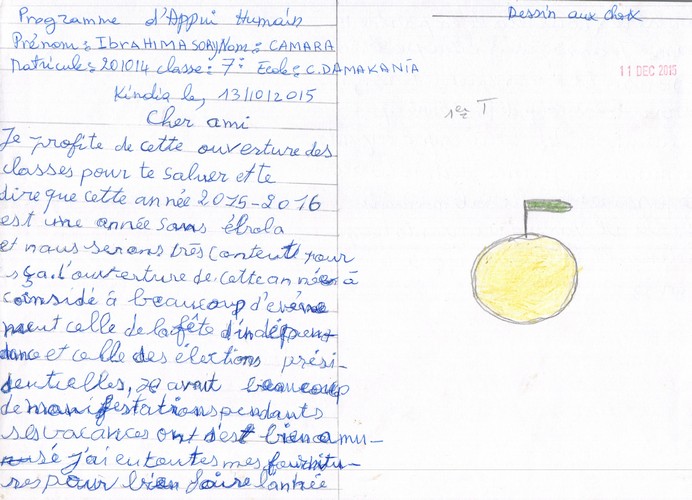 Programme d'Appui Humain
Prénom: IBRAHIMA SORY Nom: CAMARA
Matricule: 201014 classe: 7e Ecole: C. DAMAKANIA
Kindia le, 13/10/2015
Cher ami
Je profite de cette ouverture des
classes pour te saluer et te
dire que cette année 2015-2016
est une année sans ébola
et nous serons très contents pour
sça. l'ouverture de cette année à
coinsidé à beaucoup d'événe
ment celle de la fête d'indépen
dance et celle des élections prési-
dentielles, ye avait beaucoup
de manifestations pendants
ses vacances ont s'est bien amu-
sé j'ai eu toutes mes fournitu-
res pour bien faire l'année
Dessin aux choix
11 DEC 2015
1er T